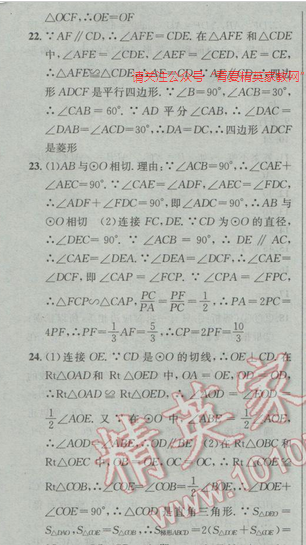 △OCF,∴OE=OF
22. ∵AF∥CD,∴∠AFE=∠CDE. 在△AFE 和△CDE
中,∠AFE=∠CDE,∠AEF=∠CED,AE=CE,
∴△AFE≌△CDE,∴AF=CD.
形 ADCF 是平行四边形. ∵∠B=90°,∠ACB=30°,
∴∠CAB=60°. ∵AD 平分∠CAB,∴∠DAC=
∠DAB=∠ACD=30°,∴DA=DC,∴四边形 ADCF
是菱形
23. (1)AB 与⊙O 相切. 理由:∵∠ACB=90°,∴∠CAE+
∠AEC=90°. ∵∠CAE=∠ADF,∠AEC=∠FDC,
∴∠ADF+∠FDC=90°,即∠ADC=90°,∴AB 与
⊙O 相切 (2)连接 FC,DE. ∵CD 为⊙O 的直径,
∴∠DEC=90°. ∵∠ACB=90°,∴DE∥AC,
∴∠CAE=∠DEA. ∵∠DEA=∠DCF,∴∠CAE=
∠DCF,即∠CAP=∠FCP. ∵∠CPA=∠FPC,
∴△FCP∽△CAP,PC/PA=PF/PC=1/2,∴PA=2PC=
4PF,∴PF=1/3AF=5/3,∴CP=2PF=10/3
24. (1)连接 OE. ∵CD 是⊙O 的切线,∴OE⊥CD. 在
Rt△OAD 和 Rt△OED 中,OA=OE,OD=OD,
∴Rt△OAD≌Rt△OED,∴∠AOD=∠EOD=
1/2∠AOE. 又∵在⊙O 中,∠ABE=1/2∠AOE,
∴∠AOD=∠ABE,∴OD∥BE (2)在 Rt△OBC 和
Rt△OEC 中,OB=OE,OC=OC,∴Rt△OEC≌
Rt△COB,∴∠COE=∠COB=1/2∠BOE,∴∠DOE+
∠COE=90°,∴△COD 是直角三角形. ∵S△DEO=
S△DAO,S△COE=S△COB,∴S梯形ABCD=2(S△DOE+S△COE)=